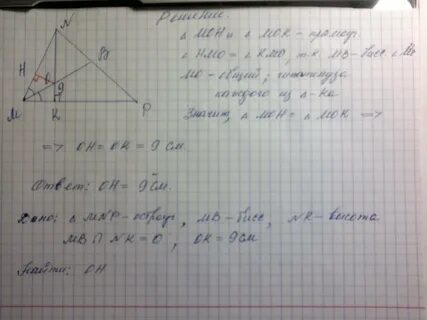 N
Решение.
△ MOH и △ MOK - прямоуг.
B
∠ HMO = ∠ KMO, т.к. MB - бисс. ∠ M
H
MO - общая, гипотенуза
O
9
каждого из △-ка
M
K
P
Значит, △ MOH = △ MOK =>
=> OH = OK = 9 см.
Ответ: OH = 9 см.
Дано: △ MNP - остроуг, MB - бисс, NK - высота
MB ∩ NK = O, OK = 9 см
Найти: OH